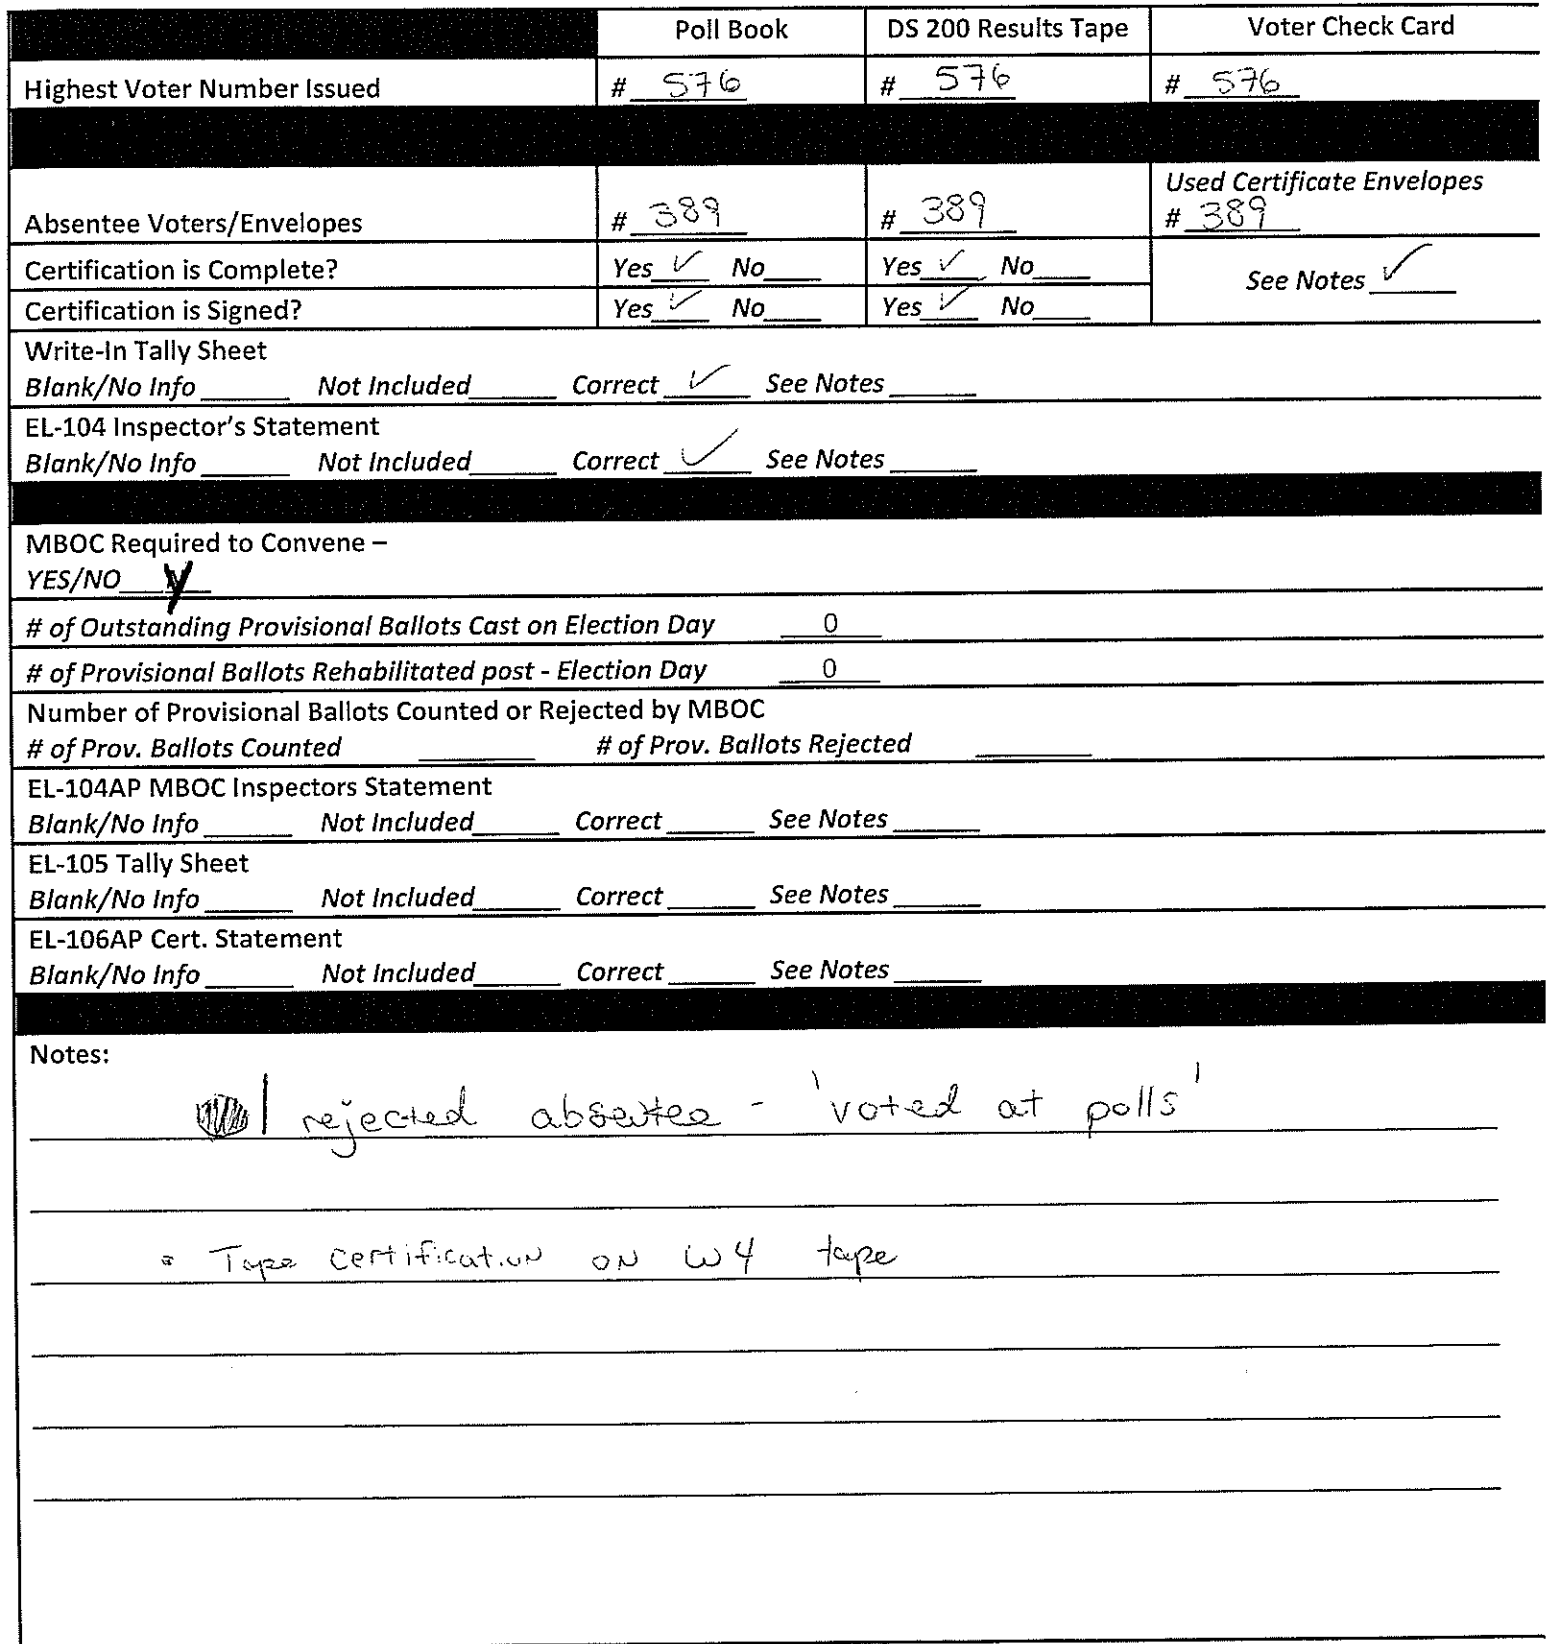 Poll Book DS 200 Results Tape Voter Check Card
Highest Voter Number Issued # 576 # 576 # 576
Used Certificate Envelopes
Absentee Voters/Envelopes # 389 # 389 # 389
Certification is Complete? Yes ✓ No____ Yes ✓ No____
See Notes ✓
Certification is Signed? Yes ✓ No____ Yes ✓ No____
Write-In Tally Sheet
Blank/No Info ______ Not Included______ Correct ✓ See Notes ______
EL-104 Inspector's Statement
Blank/No Info ______ Not Included______ Correct ✓ See Notes ______
MBOC Required to Convene –
YES/NO
# of Outstanding Provisional Ballots Cast on Election Day 0
# of Provisional Ballots Rehabilitated post - Election Day 0
Number of Provisional Ballots Counted or Rejected by MBOC
# of Prov. Ballots Counted ________ # of Prov. Ballots Rejected ________
EL-104AP MBOC Inspectors Statement
Blank/No Info ______ Not Included______ Correct ______ See Notes ______
EL-105 Tally Sheet
Blank/No Info ______ Not Included______ Correct ______ See Notes ______
EL-106AP Cert. Statement
Blank/No Info ______ Not Included______ Correct ______ See Notes ______
Notes:
1 rejected absentee - 'voted at polls'
Tape certification on W4 tape